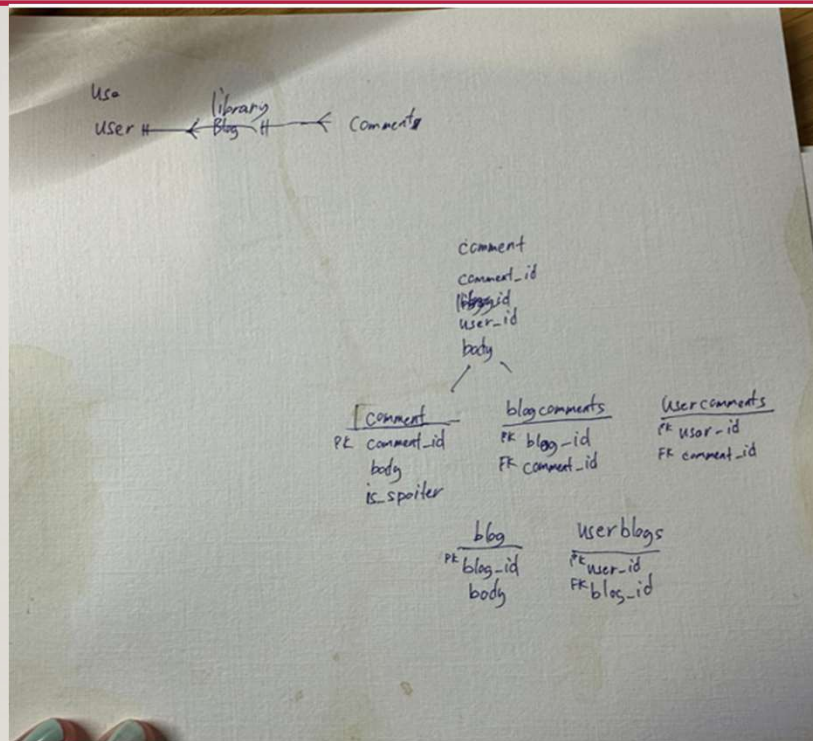 Use
library
user Blog Comments
comment
comment_id
user_id
body
comment
PK comment_id
body
is_spoiler
blogcomments
PK blog_id
FK comment_id
Usercomments
PK user_id
FK comment_id
blog
PK blog_id
body
userblogs
PK user_id
FK blog_id